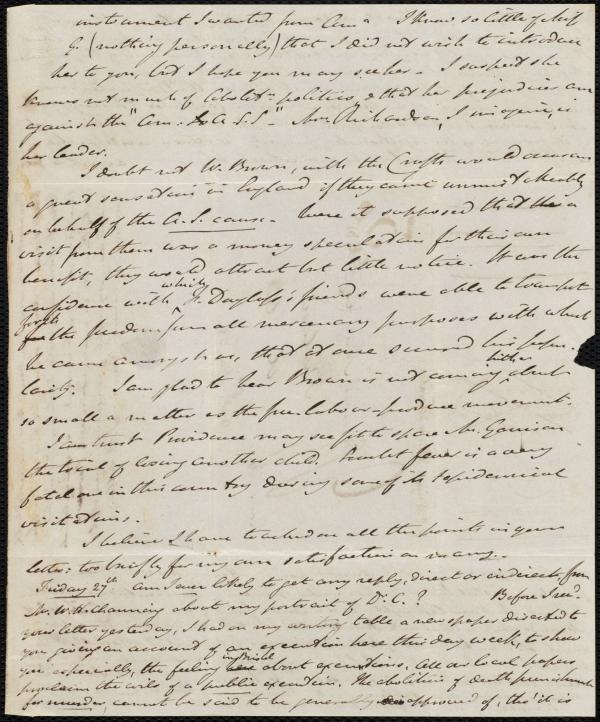 instrument I wanted from Ama. I know so little of Miss
G. (nothing personally) that I did not wish to introduce
her to you, but I hope you may see her. I suspect she
knows not much of Abolitn. politics, & that her prejudices are
against the "Am: A. S. S." Mrs. Richardson, I imagine, is
her leader.
I doubt not W. Brown, with the Crafts would occasion
a great sensation in England if they came unmistakeably
on behalf of the A. S. cause. Were it supposed that a
visit from them was a money speculation for their own
benefit, they would attract but little notice. It was the
confidence with which F. Douglass's friends were able to trumpet
forth the freedom from all mercenary purposes with which
he came amongst us, that at once secured his popu-
larity. I am glad to hear Brown is not coming hither about
so small a matter as the free labour-produce movement.
I trust Providence may see fit to spare Mr. Garrison
the trial of losing another child. Scarlet fever is a very
fatal one in this country during some of its epidemical
visitations.
I believe I have touched on all the points in your
letter: too briefly for my own satisfaction on many.
Friday 27th. Am I ever likely to get any reply, direct or indirect, from
Mr. W. H. Channing about my portrait of Dr. C.? Before I recd.
your letter yesterday, I had on my writing table a newspaper directed to
you giving an account of an execution here this day week, to show
you especially, the feeling in Bristol about executions. All our local papers
proclaim the evils of a public execution. The abolition of death punishment
for murder, cannot be said to be generally approved of, tho' it is